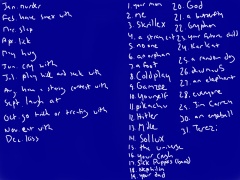 Jan. murder
Feb. have sex with
Mr. slap
Apr. lick
May hug
Jun. cry with
July play walk and suck with
Aug. have a staring contest with
Sept. laugh at
Oct. go talk or texting with
Nov. eat with
Dec. kiss
1. your mom
2. me
3. Skrillex
4. a strong
5. no one
6. an orphan
7. a foot
8. Coldplay
9. Gamzee
10. Yourself
11. pikachu
12. Hitler
13. Mike
14. Sollux
15. the universe
16. your crush
17. Sick Puppies (band)
18. Nephilim
19. your dad
20. God
21. a butterfly
22. Gryphon
23. your future child
24. Karkat
25. a random dog
26. 
27. an elephant
28. everyone
29. Jim Carrey
30. an eggshell
31. Terezi